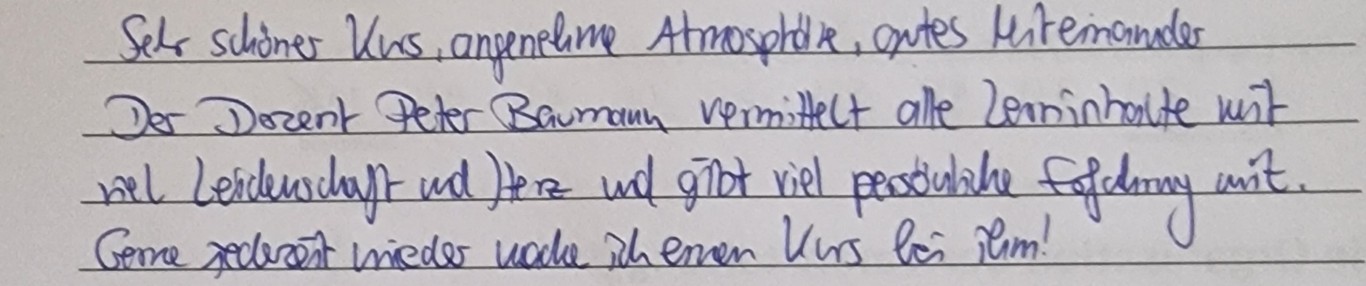 Sehr schöner Kurs, angenehme Atmosphäre, gutes Miteinander
Der Dozent Peter Baumann vermittelt alle Lerninhalte mit
viel Leidenschaft und Herz und gibt viel persönliche Erfahrung mit.
Gerne jederzeit wieder mache ich einen Kurs bei ihm!